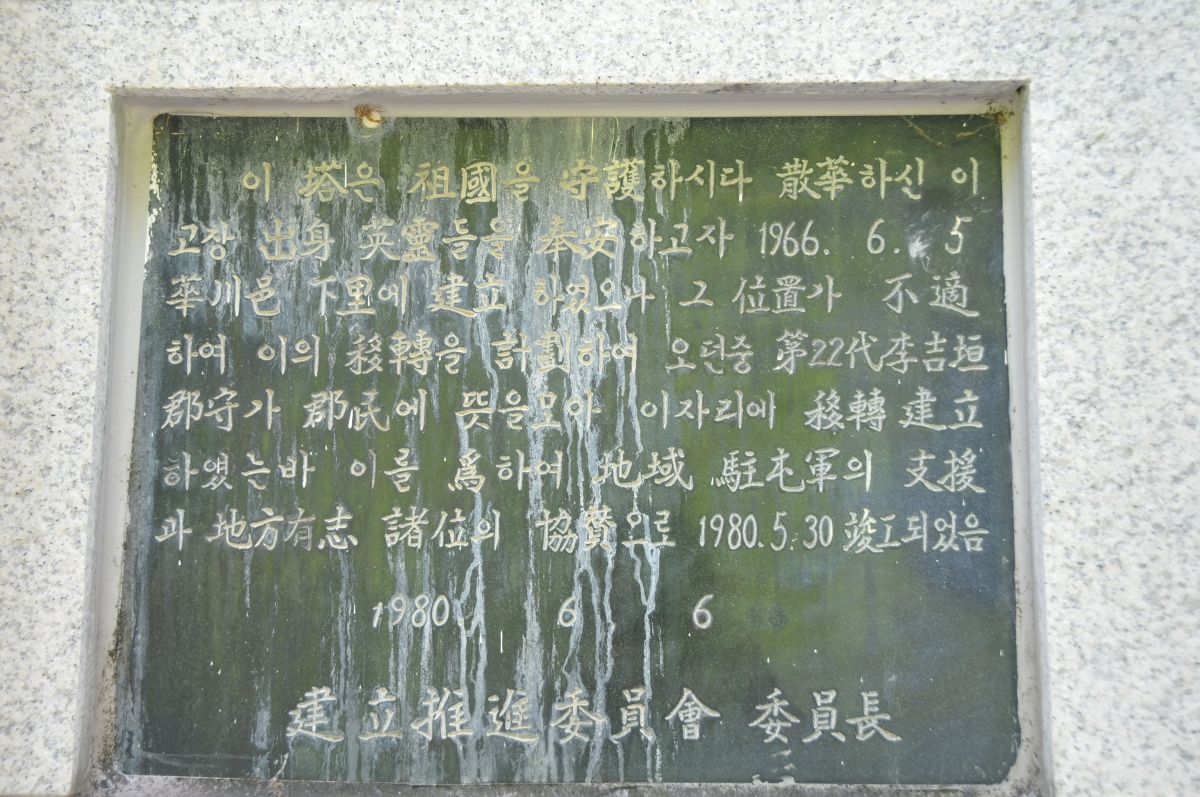 이 塔은 祖國을 守護하시다 散華하신 이
고장 出身 英靈들을 奉安하고자 1966. 6. 5
華川邑 下里에 建立 하였으나 그 位置가 不適
하여 이의 移轉을 計劃하여 오던중 第22代李吉垣
郡守가 郡民에 뜻을모아 이자리에 移轉 建立
하였는바 이를 爲하여 地域 駐屯軍의 支援
과 地方有志 諸位의 協贊으로 1980.5.30 竣工되었음
1980. 6. 6
建立推進委員會 委員長